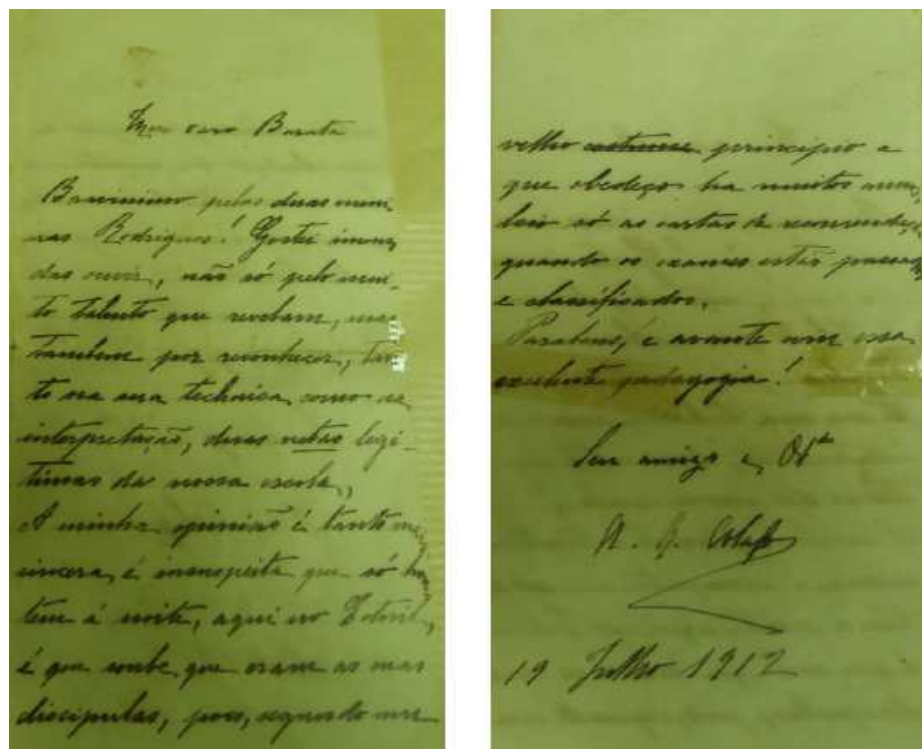 Meu caro Barata
Bravissimo pelas duas meni-
nas Rodrigues! Gostei immen
das ouvir, não só pelo mui-
to talento que revelam, mas
tambem por reconhecer, tan
to na sua technica, como na
interpretação, duas netas legi-
timas da nossa escola,
A minha opinião é tanto ma
sincera, é insuspeita que só ho
tem á noite, aqui no Estoril,
é que soube que eram as suas
discipulas, pois, segundo um
velho principio a
que obedeço ha muitos annos,
leio só as cartas de recommenda
quando os exames estão passados
e classificados.
Parabens, e avante com essa
excellente pedagogia!
Seu amigo e
A. R. Colaço
19 Julho 1912